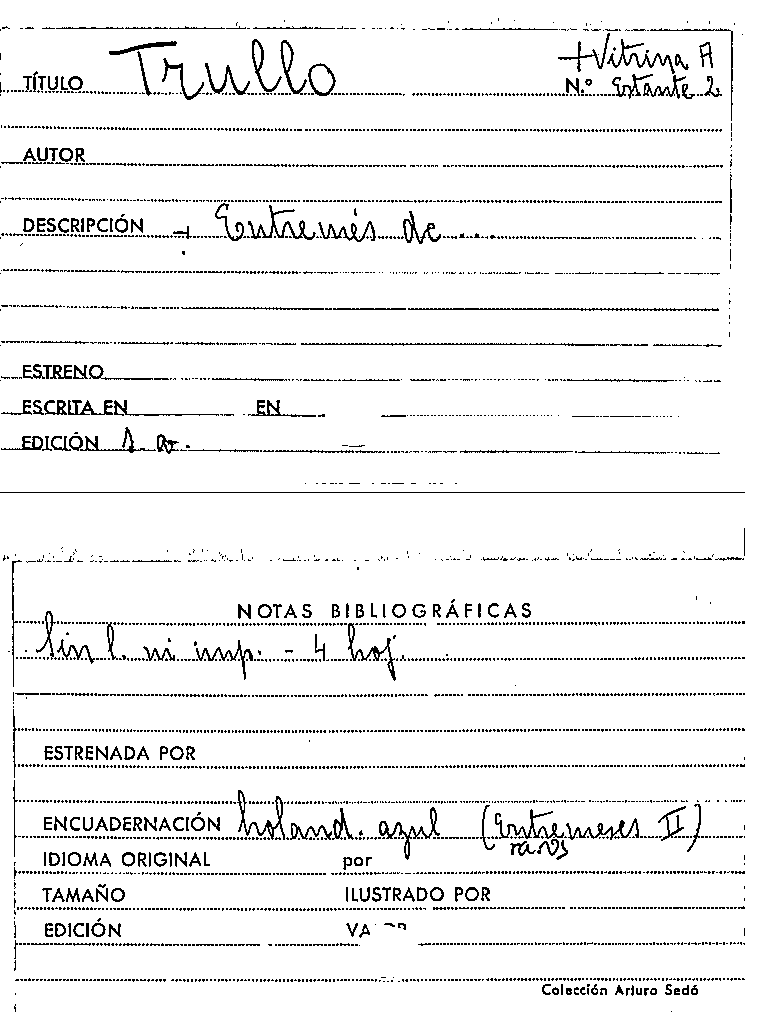 +Vitrina A
TÍTULO Trullo N.º Estante 2
AUTOR
DESCRIPCIÓN - Entremés de ...
ESTRENO
ESCRITA EN EN
EDICIÓN s. a. —
NOTAS BIBLIOGRÁFICAS
Sin l. ni imp. - 4 hoj.
ESTRENADA POR
ENCUADERNACIÓN holand. azul (Entremeses II)
raros
IDIOMA ORIGINAL por
TAMAÑO ILUSTRADO POR
EDICIÓN
Colección Arturo Sedó